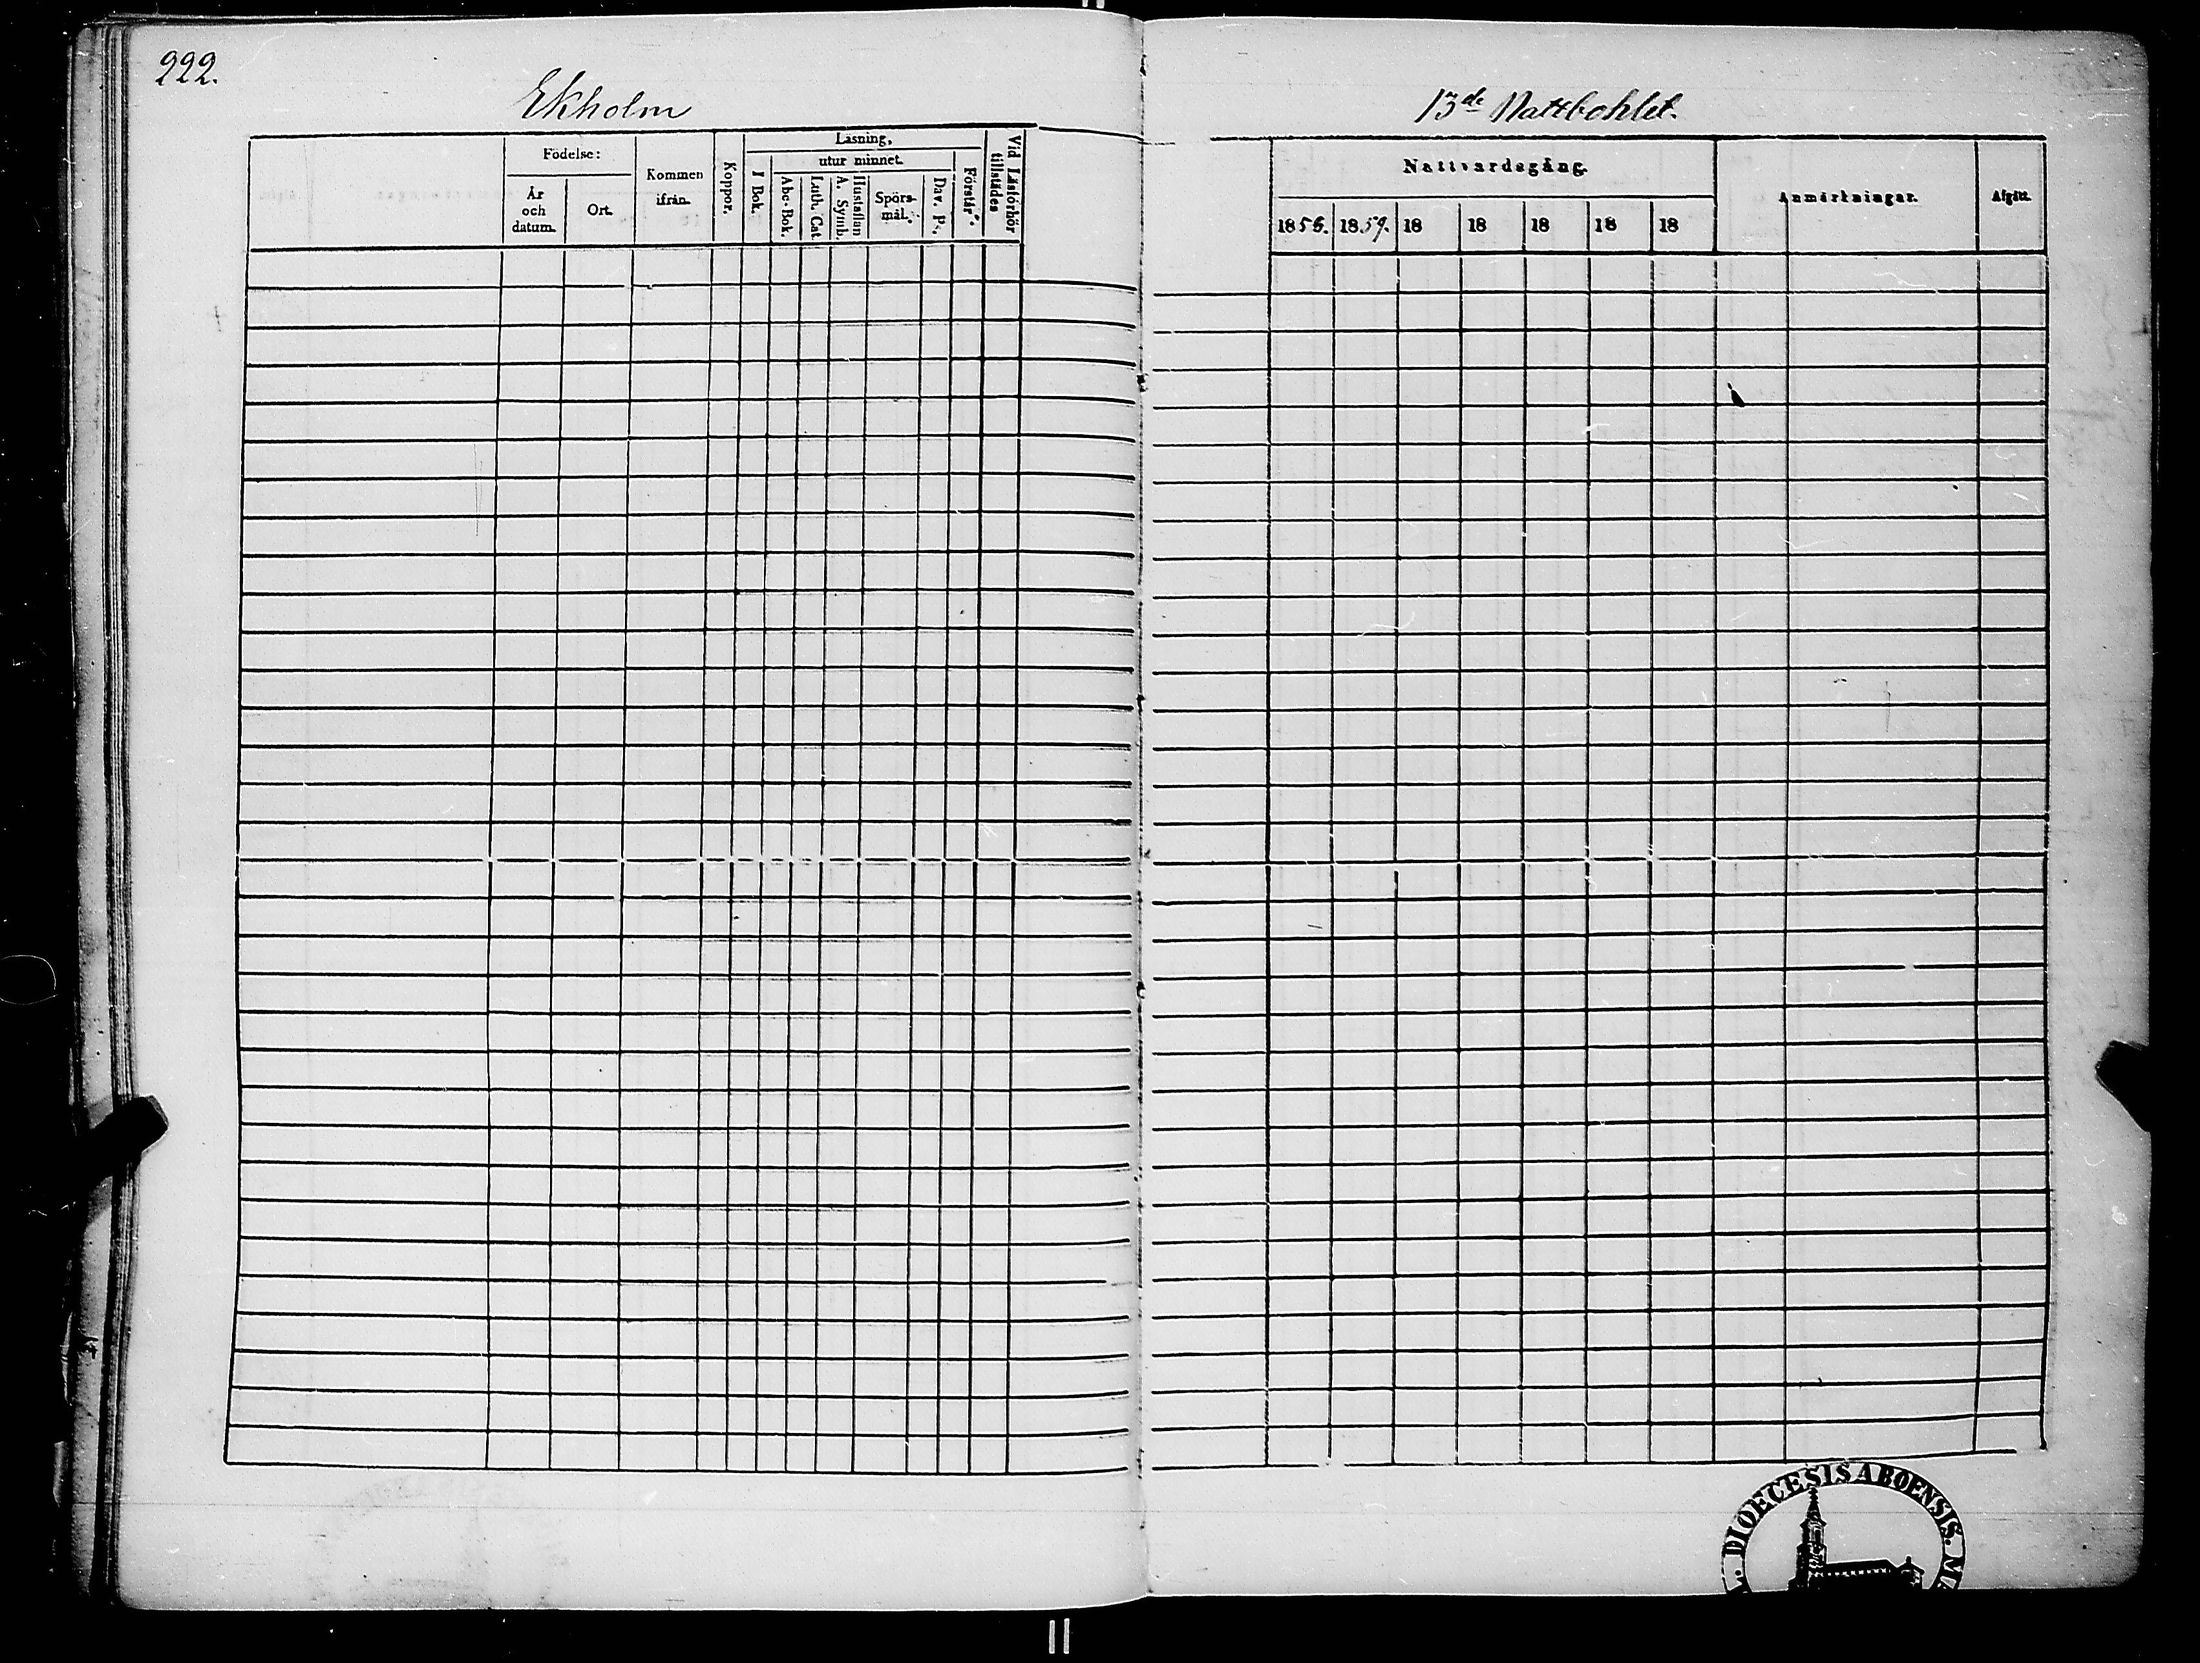 222.
Ekholm
13de Nattbohlet.
Födelse:
År
och
datum.
Ort.
Kommen
ifrån.
Koppor.
Läsning,
utur minnet.
I Bok.
Abc-Bok.
Luth. Cat.
Hustaflan
A. Symb.
Spörs-
mål.
Dav. Ps.
Förstår
Vid Läsförhör
tillstädes
Nattvardsgång.
1856. 1859. 18 18 18 18 18
Anmärkningar.
Afgått.
DIOECESIS ABOENSIS.